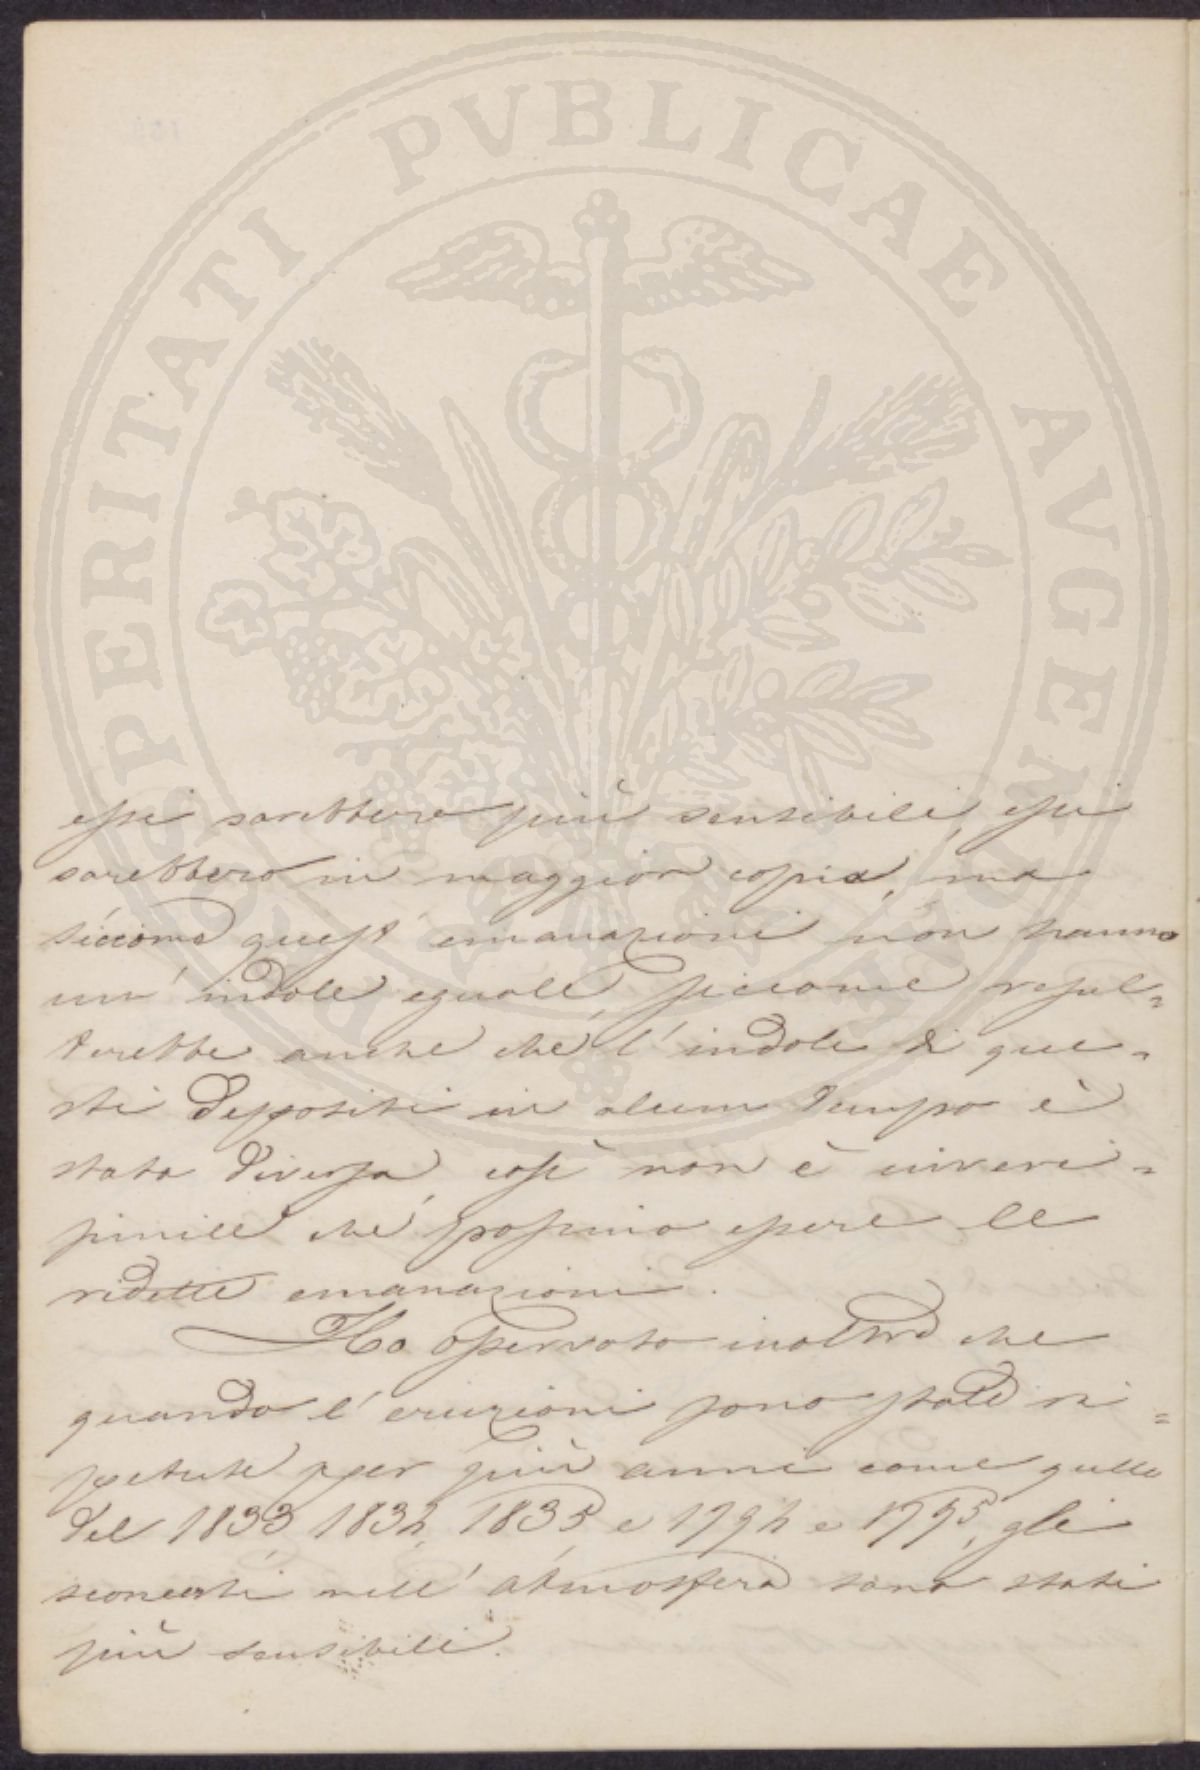 PROSPERITATI PVBLICAE AVGENDAE
essi sarebbero più sensibili, essi
sarebbero in maggior copia, ma
siccome quest' emanazioni non hanno
un' indole eguale, siccome resul=
terebbe anche che l' indole di que=
sti depositi in alcun tempo è
stata diversa, così non è inveri=
simile che possino essere le
ridette emanazioni.
Ho osservato inoltre che
quando l' eruzioni sono state ri=
petute per più anni come quelle
del 1833, 1834, 1835, e 1794 e 1795, gli
sconcerti nell' atmosfera sono stati
più sensibili.